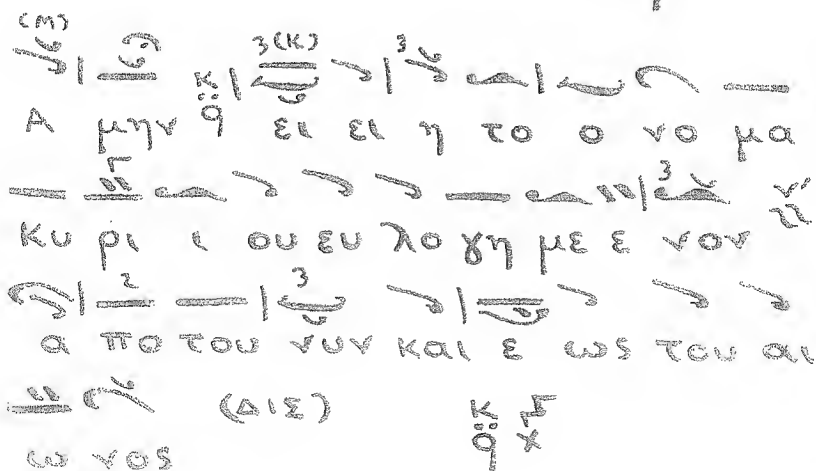 (Μ)
3(Κ) 3
Α μην κ̈ q ει ει η το ο νο μα
Γ 3 ν'
Κυ ρι ι ου ευ λο γη με ε νον
2 3
α πο του νυν και ε ως του αι
(ΔΙΣ) κ̈ q
ω νος